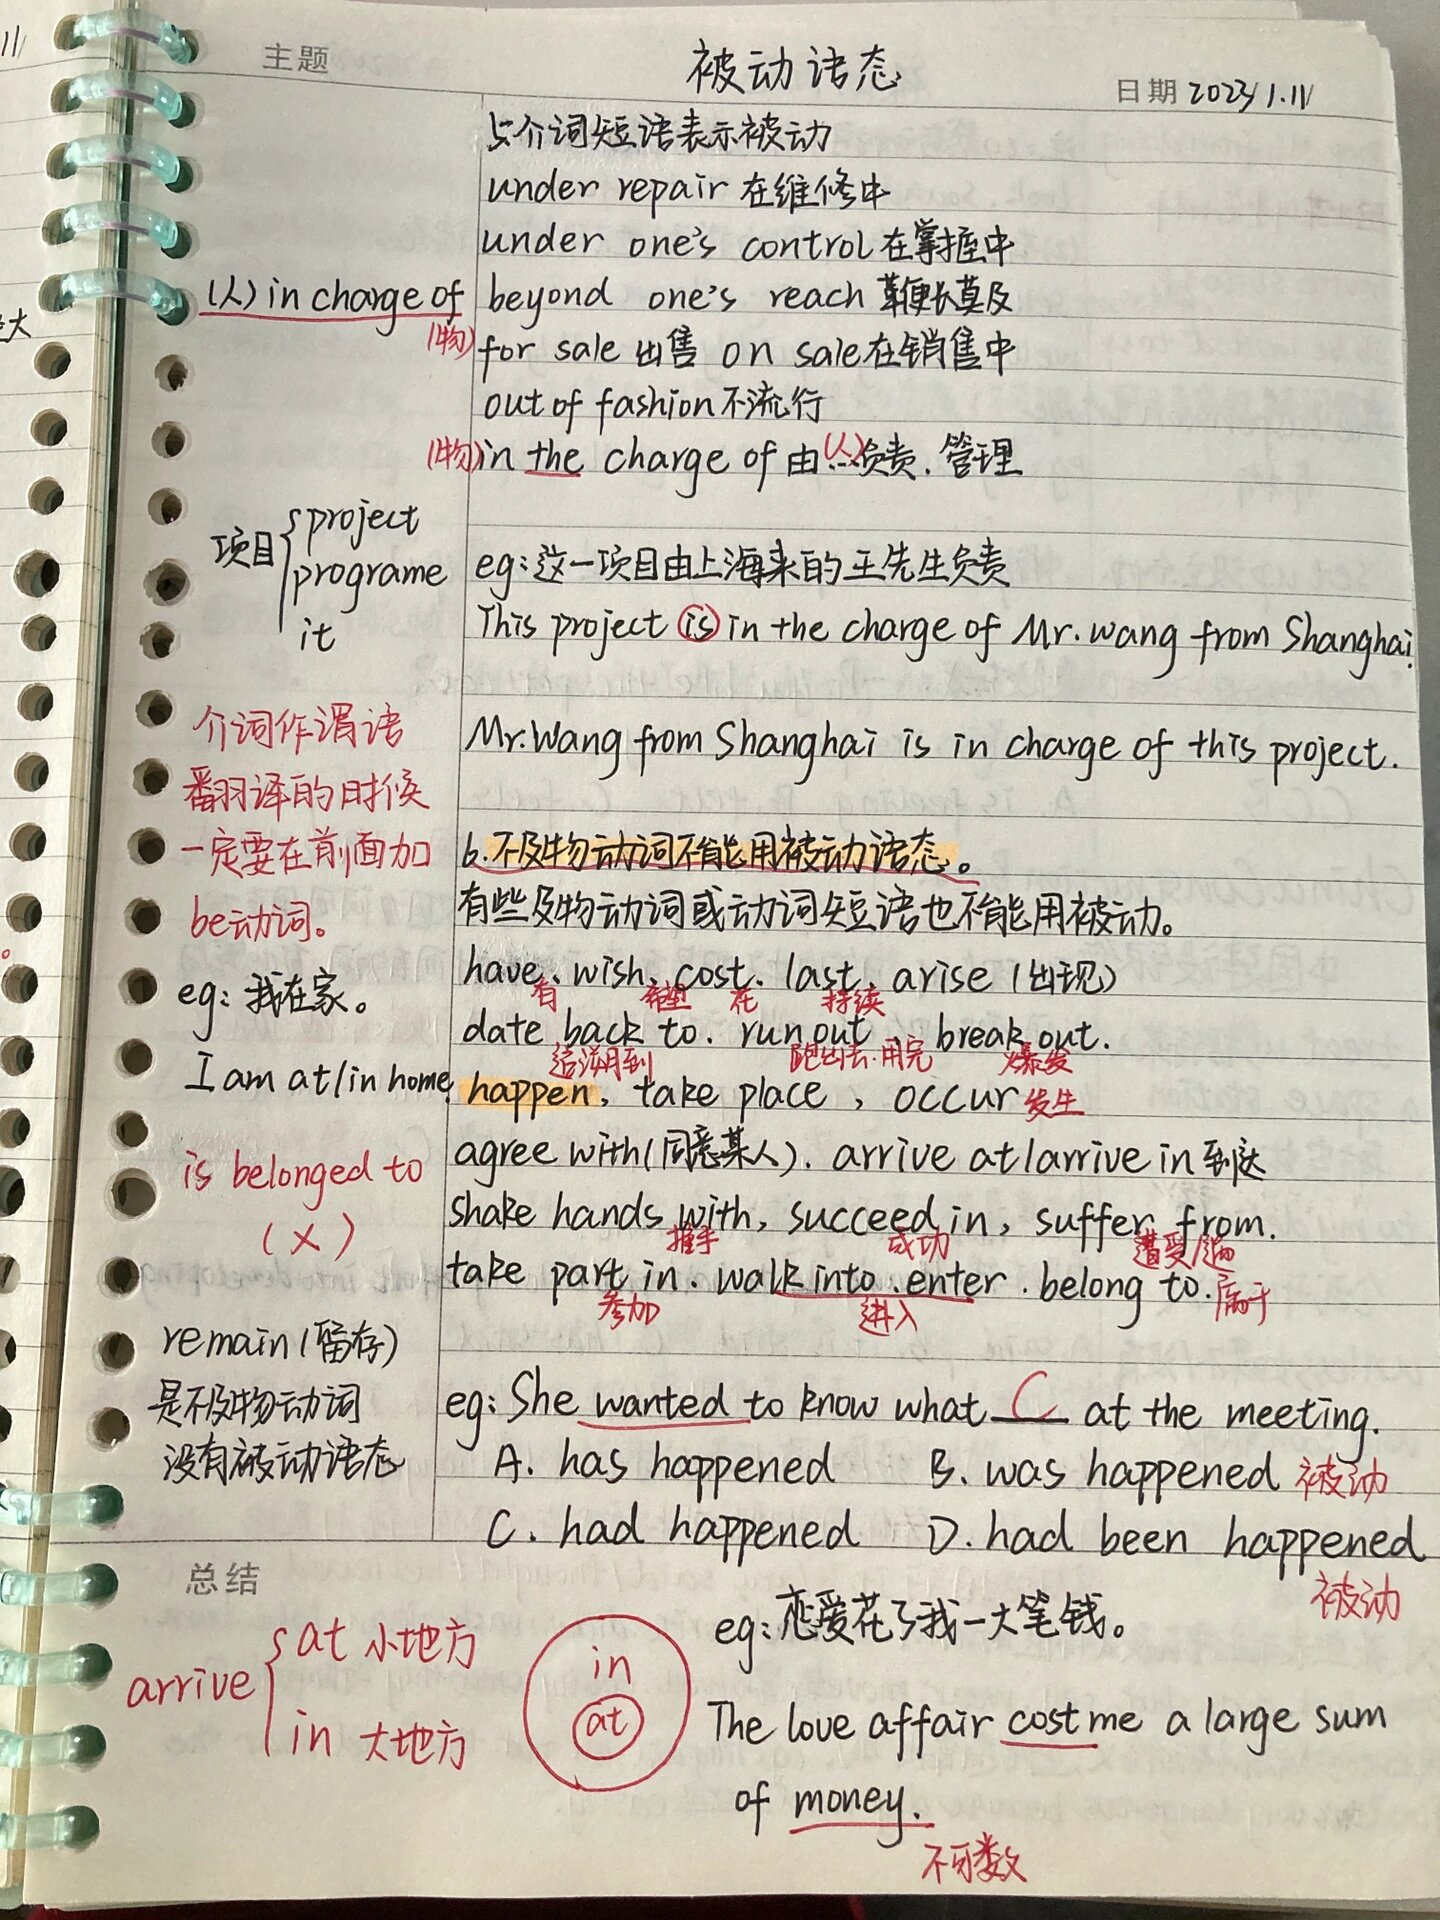 主题
被动语态
日期 2023/1.11
5介词短语表示被动
under repair 在维修中
under one's control 在掌握中
(人) in charge of (物)
beyond one's reach 鞭长莫及
for sale 出售 on sale 在销售中
out of fashion 不流行
(物) in the charge of 由…(人)负责.管理
项目 { project
programe
it
eg:这一项目由上海来的王先生负责
This project is in the charge of Mr.wang from Shanghai.
Mr.Wang from Shanghai is in charge of this project.
介词作谓语
翻译的时候
一定要在前面加
be动词。
eg:我在家。
I am at/in home.
is belonged to
(×)
remain(留存)
是不及物动词
没有被动语态
6.不及物动词不能用被动语态。
有些及物动词或动词短语也不能用被动。
have、wish、cost、last、arise(出现)
有 希望 花 持续
date back to. run out break out.
追溯到 跑出去.用完 爆发
happen, take place, occur 发生
agree with(同意某人). arrive at/arrive in 到达
shake hands with, succeed in, suffer from.
握手 成功
take part in. walk into.enter. belong to. 属于
参加 进入
eg:She wanted to know what C at the meeting.
A. has happened B. was happened 被动
C. had happened D. had been happened
被动
总结
arrive { at 小地方
in 大地方
in
at
eg:恋爱花了我一大笔钱。
The love affair cost me a large sum
of money.
不可数